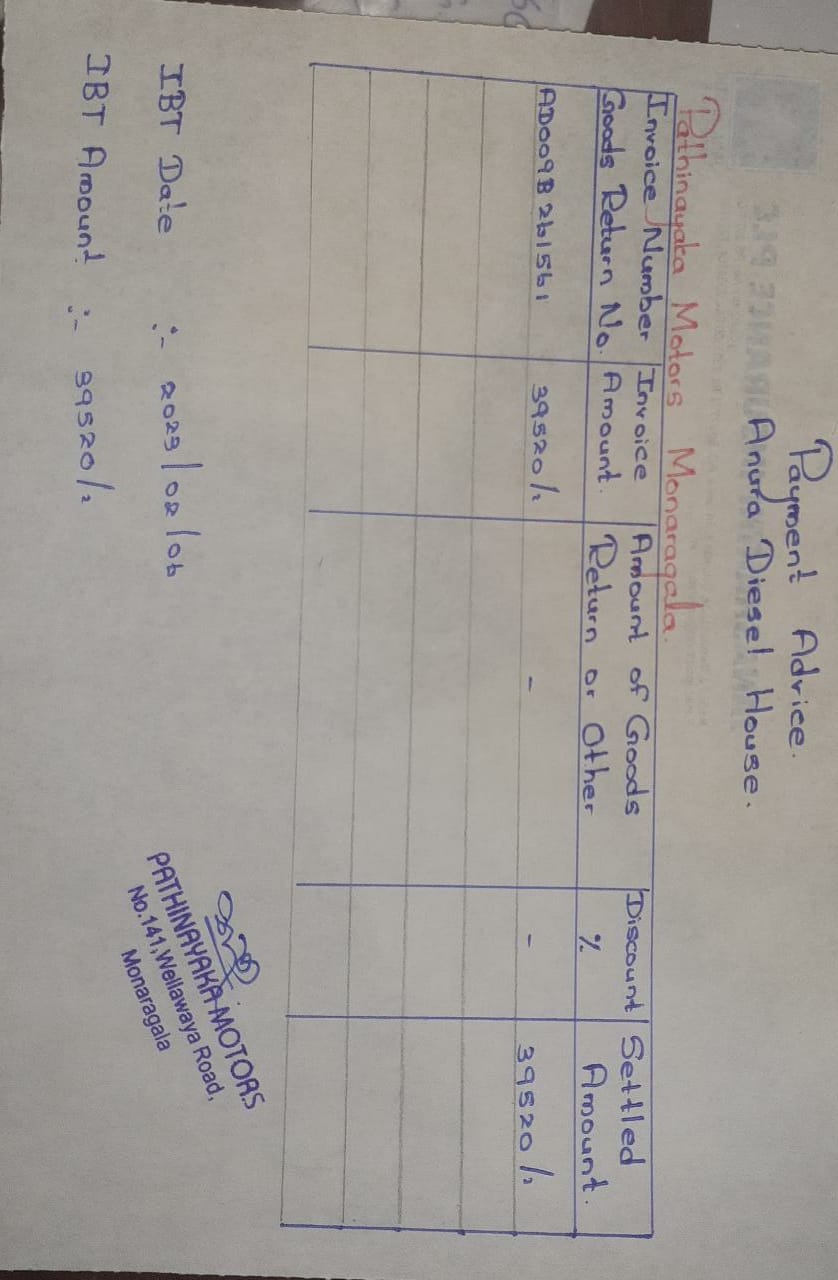 Payment Advice.
Anura Diesel House.
Pathinayaka Motors Monaragala.
Invoice Number Goods Return No. | Invoice Amount. | Amount of Goods Return or Other | Discount % | Settled Amount.
AD009B261561 | 39520/= | - | - | 39520/=
IBT Date :- 2023/02/06
IBT Amount :- 39520/=
PATHINAYAKA MOTORS
No.141,Wellawaya Road,
Monaragala